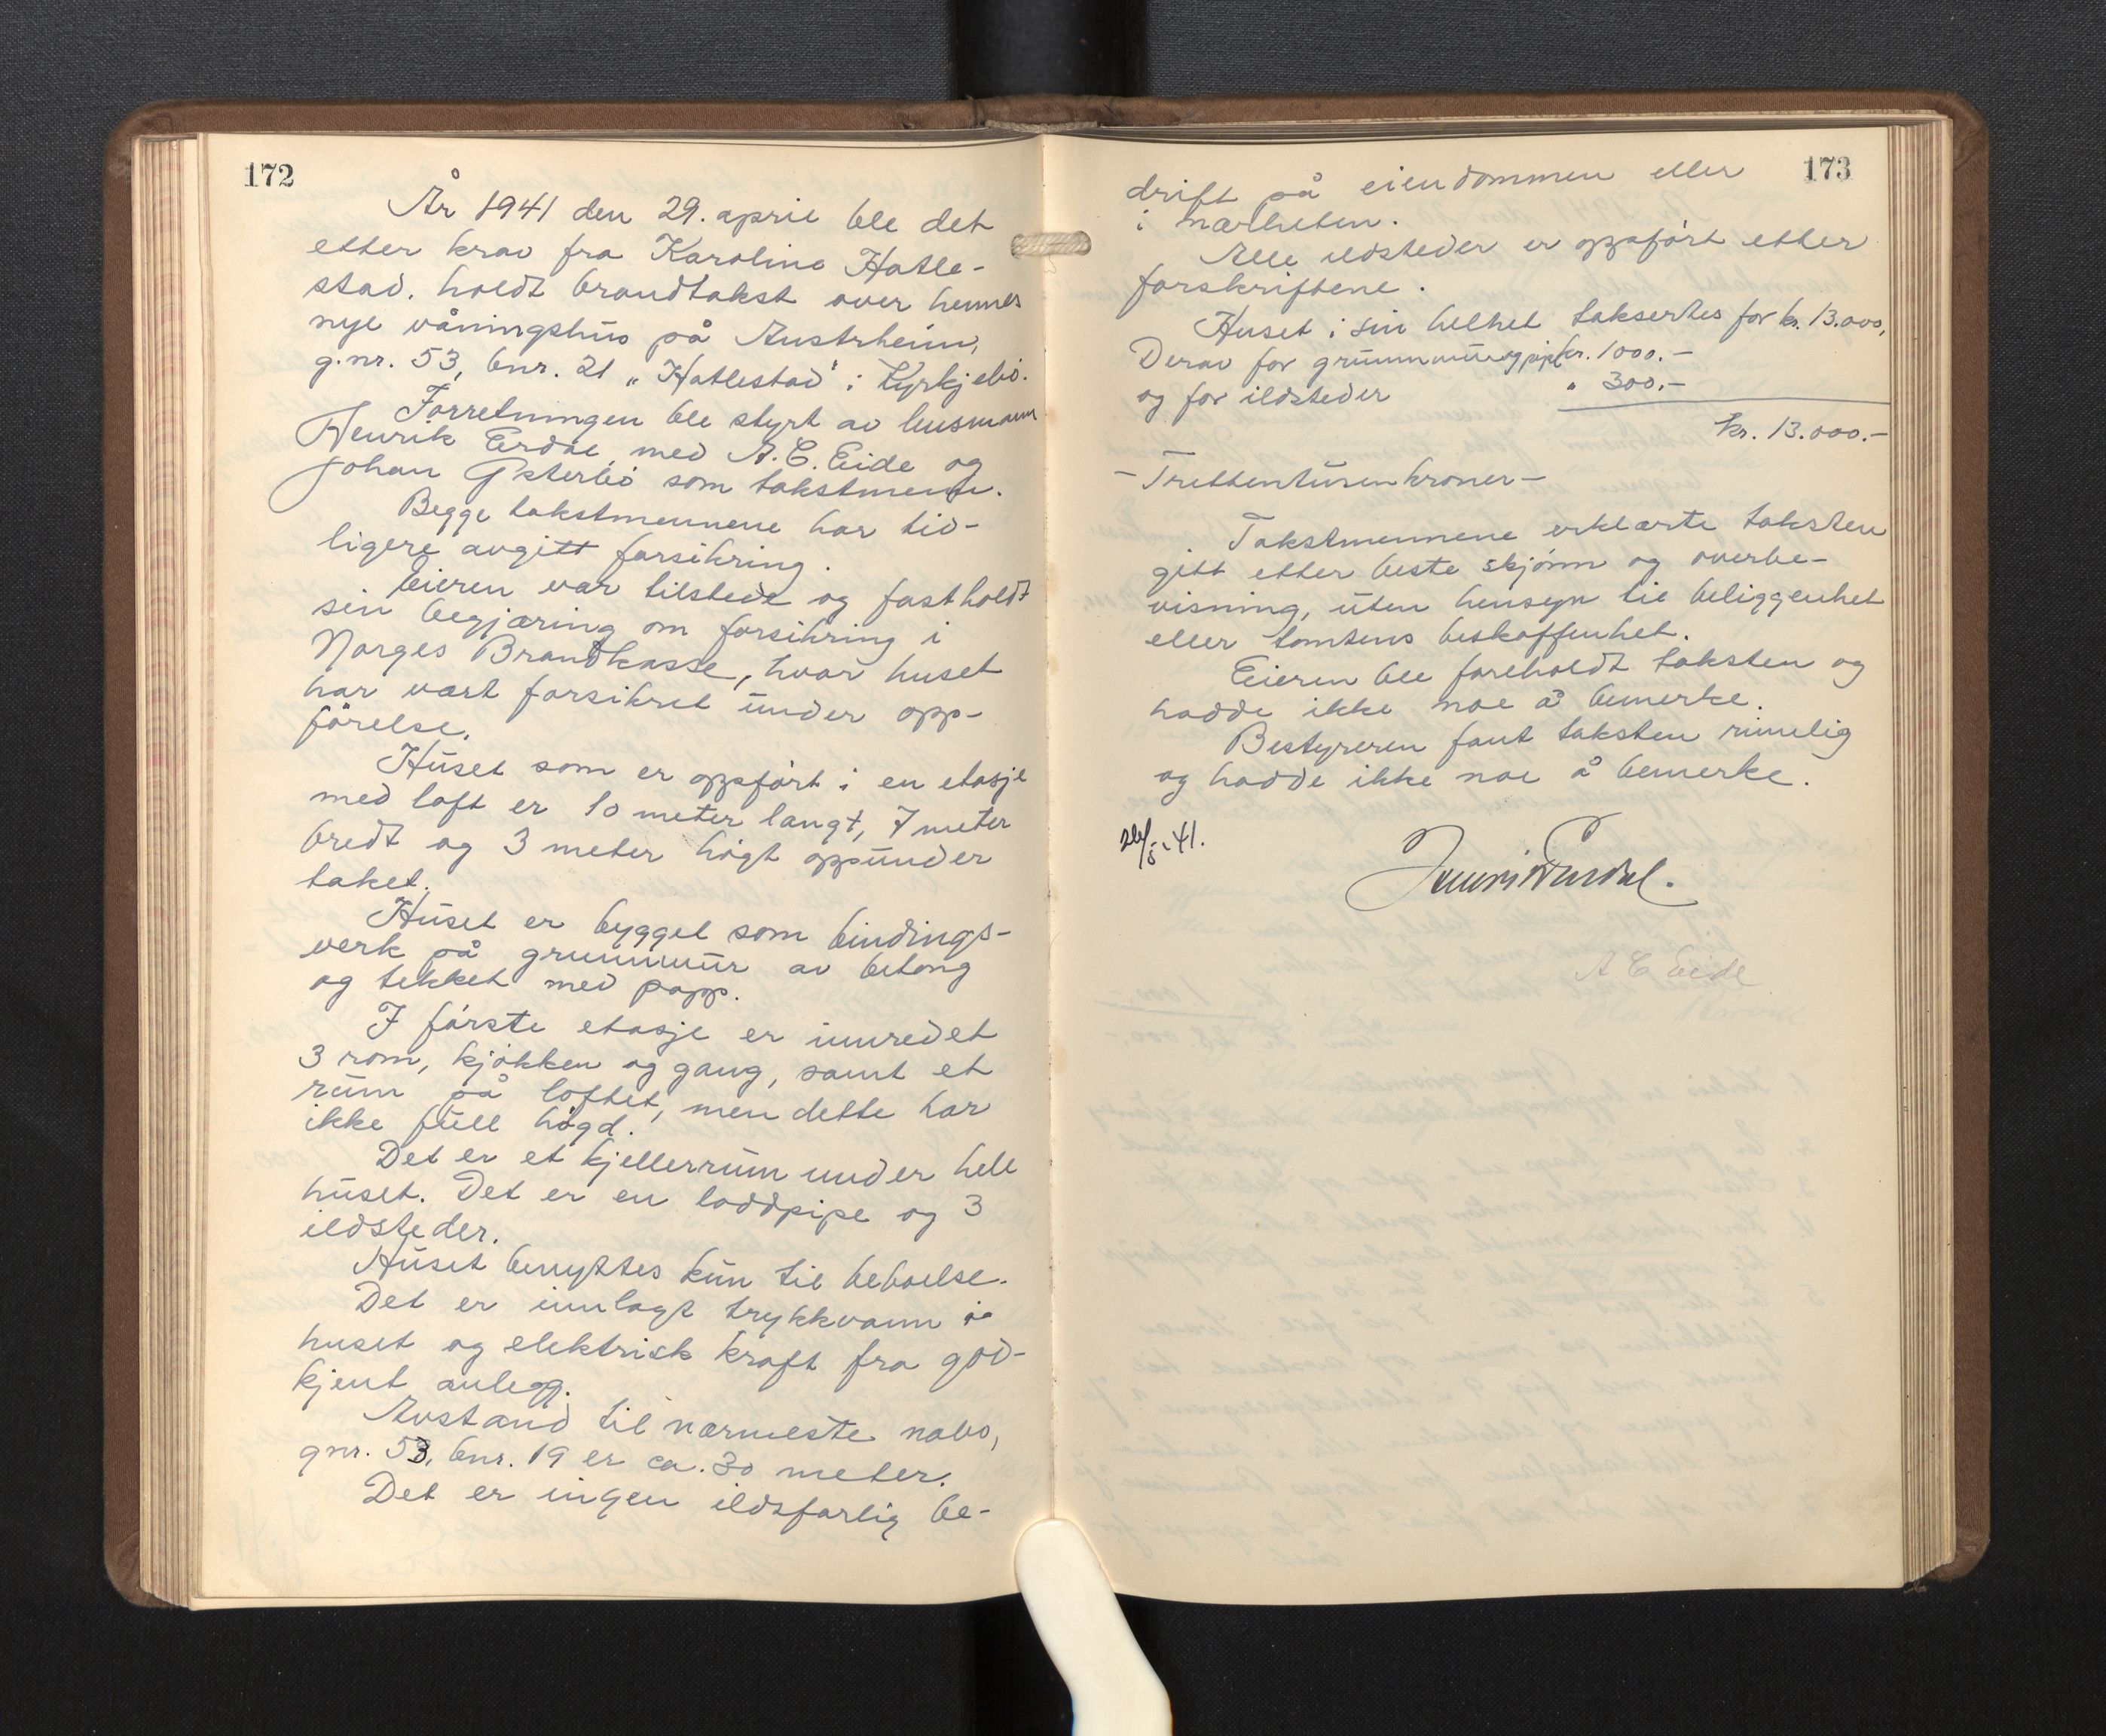 172
År 1941 den 29. april ble det
etter krav fra Karoline Hatle-
stad. holdt brandtakst over hennes
nye våningshus på Austrheim,
g.nr. 53, bnr. 21 „Hatlestad" i Kyrkjebø.
Forretningen ble styrt av lensmann
Henrik Erdal med A. C. Eide og
Johan Ysterbø som takstmenn.
Begge takstmennene har tid-
ligere avgitt forsikring.
Eieren var tilstede og fastholdt
sin begjæring om forsikring i
Norges Brandkasse, hvor huset
har vært forsikret under opp-
førelse.
Huset som er oppført i en etasje
med loft er 10 meter langt, 7 meter
bredt og 3 meter høgt oppunder
taket.
Huset er bygget som bindings-
verk på grunnmur av betong
og tekket med papp.
I første etasje er innredet
3 rom, kjøkken og gang, samt et
rum på loftet, men dette har
ikke full høgd.
Det er et kjellerrum under hele
huset. Det er en loddpipe og 3
ildsteder.
Huset benyttes kun til beboelse.
Det er innlagt trykkvann i
huset og elektrisk kraft fra god-
kjent anlegg.
Avstand til nærmeste nabo,
gnr. 53, bnr. 19 er ca. 30 meter.
Det er ingen ildsfarlig be-
173
drift på eiendommen eller
i nærheten.
Alle ildsteder er oppført etter
forskriftene.
Huset i sin helhet taksertes for kr. 13.000,
Derav for grunnmur og pipe kr. 1000.-
og for ildsteder " 300.-
kr. 13.000.-
- Trettentusen kroner -
Takstmennene erklærte taksten
gitt etter beste skjønn og overbe-
visning, uten hensyn til beliggenhet
eller tomtens beskaffenhet.
Eieren ble foreholdt taksten og
hadde ikke noe å bemerke.
Bestyreren fant taksten rimelig
og hadde ikke noe å bemerke.
26/5-41.
Henrik Erdal.
A C Eide